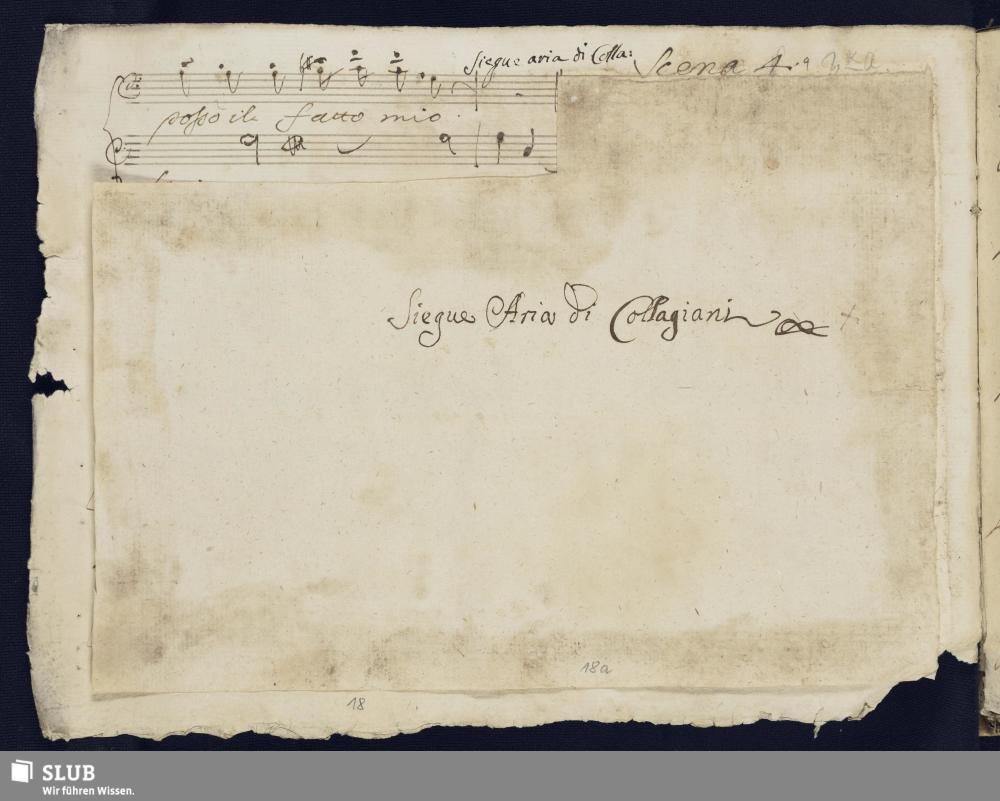 Siegue aria di Colla:
Scena 4.a
posso il fatto mio.
Siegue Aria di Collagiani
18a
18
SLUB
Wir führen Wissen.